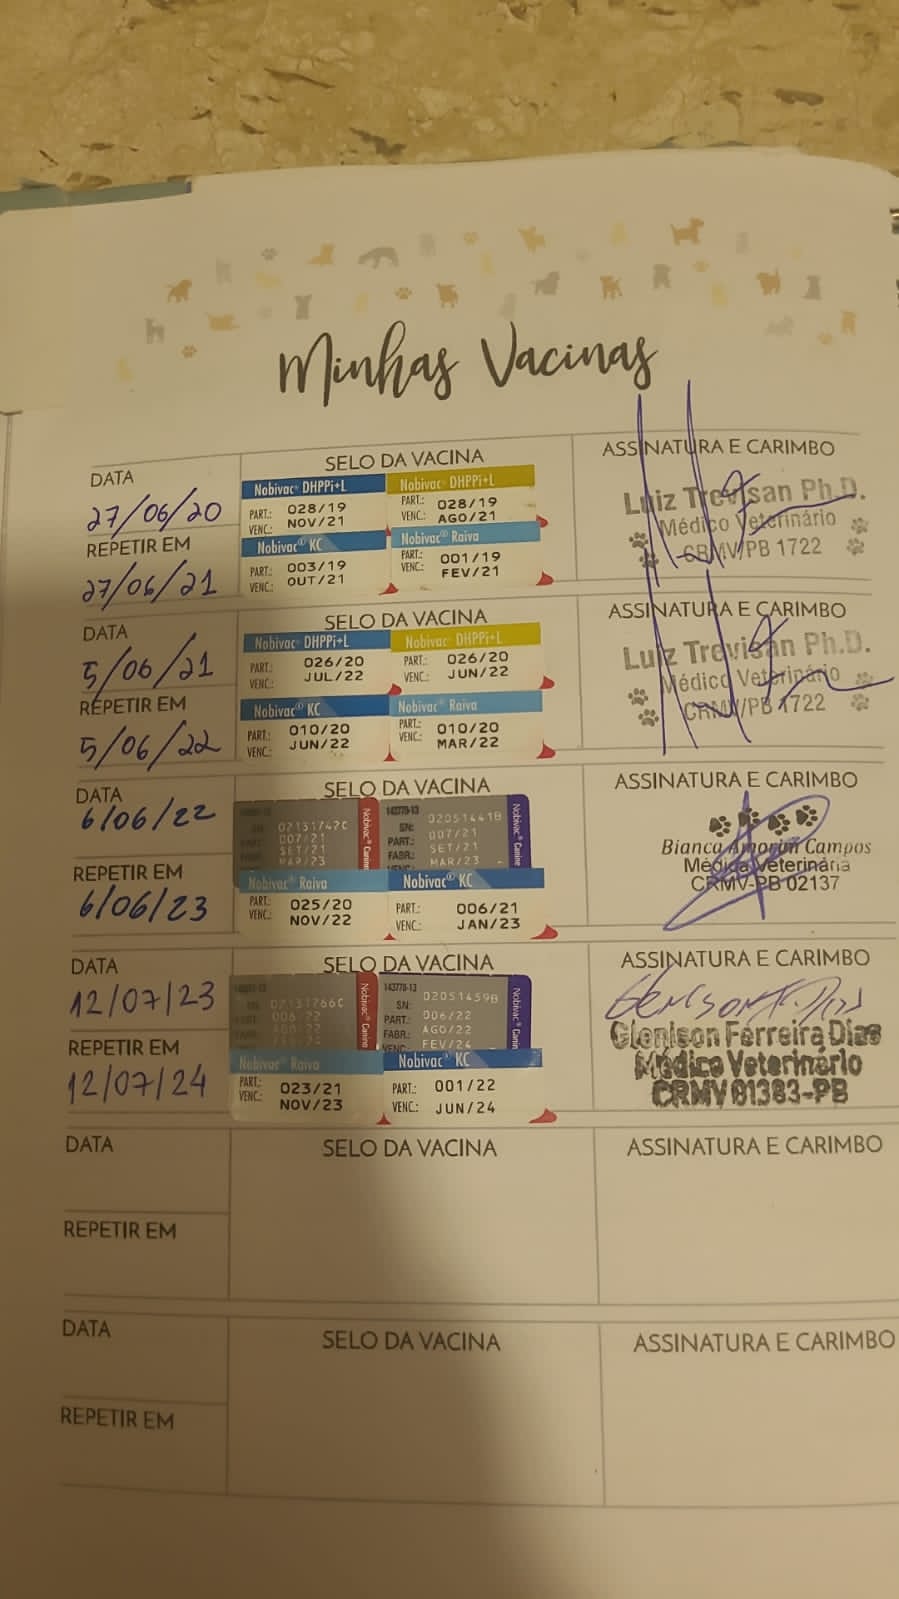 Minhas Vacinas
DATA
27/06/20
REPETIR EM
27/06/21
SELO DA VACINA
Nobivac® DHPPi+L
PART.: 028/19
VENC.: NOV/21
Nobivac® DHPPi+L
PART.: 028/19
VENC.: AGO/21
Nobivac® KC
PART.: 003/19
VENC.: OUT/21
Nobivac® Raiva
PART.: 001/19
VENC.: FEV/21
ASSINATURA E CARIMBO
Luiz Trevisan Ph.D.
Médico Veterinário
CRMV/PB 1722
DATA
5/06/21
REPETIR EM
5/06/22
SELO DA VACINA
Nobivac® DHPPi+L
PART.: 026/20
VENC.: JUL/22
Nobivac® DHPPi+L
PART.: 026/20
VENC.: JUN/22
Nobivac® KC
PART.: 010/20
VENC.: JUN/22
Nobivac® Raiva
PART.: 010/20
VENC.: MAR/22
ASSINATURA E CARIMBO
Luiz Trevisan Ph.D.
Médico Veterinário
CRMV/PB 1722
DATA
6/06/22
REPETIR EM
6/06/23
SELO DA VACINA
007/21
SET/21
MAR/23
Nobivac® Canine
143770-13
SN: 02051441B
PART.: 007/21
FABR.: SET/21
MAR/23
Nobivac® Canine
Nobivac® Raiva
PART.: 025/20
VENC.: NOV/22
Nobivac® KC
PART.: 006/21
VENC.: JAN/23
ASSINATURA E CARIMBO
Bianca Amorim Campos
Médica Veterinária
CRMV-PB 02137
DATA
12/07/23
REPETIR EM
12/07/24
SELO DA VACINA
02131766C
006/22
Nobivac® Canine
143770-13
SN: 02051459B
PART.: 006/22
FABR.: AGO/22
VENC.: FEV/24
Nobivac® Canin
Nobivac® Raiva
PART.: 023/21
VENC.: NOV/23
Nobivac® KC
PART.: 001/22
VENC.: JUN/24
ASSINATURA E CARIMBO
Glenison F. Dias
Glenison Ferreira Dias
Médico Veterinário
CRMV 01383-PB
DATA
REPETIR EM
SELO DA VACINA
ASSINATURA E CARIMBO
DATA
REPETIR EM
SELO DA VACINA
ASSINATURA E CARIMBO